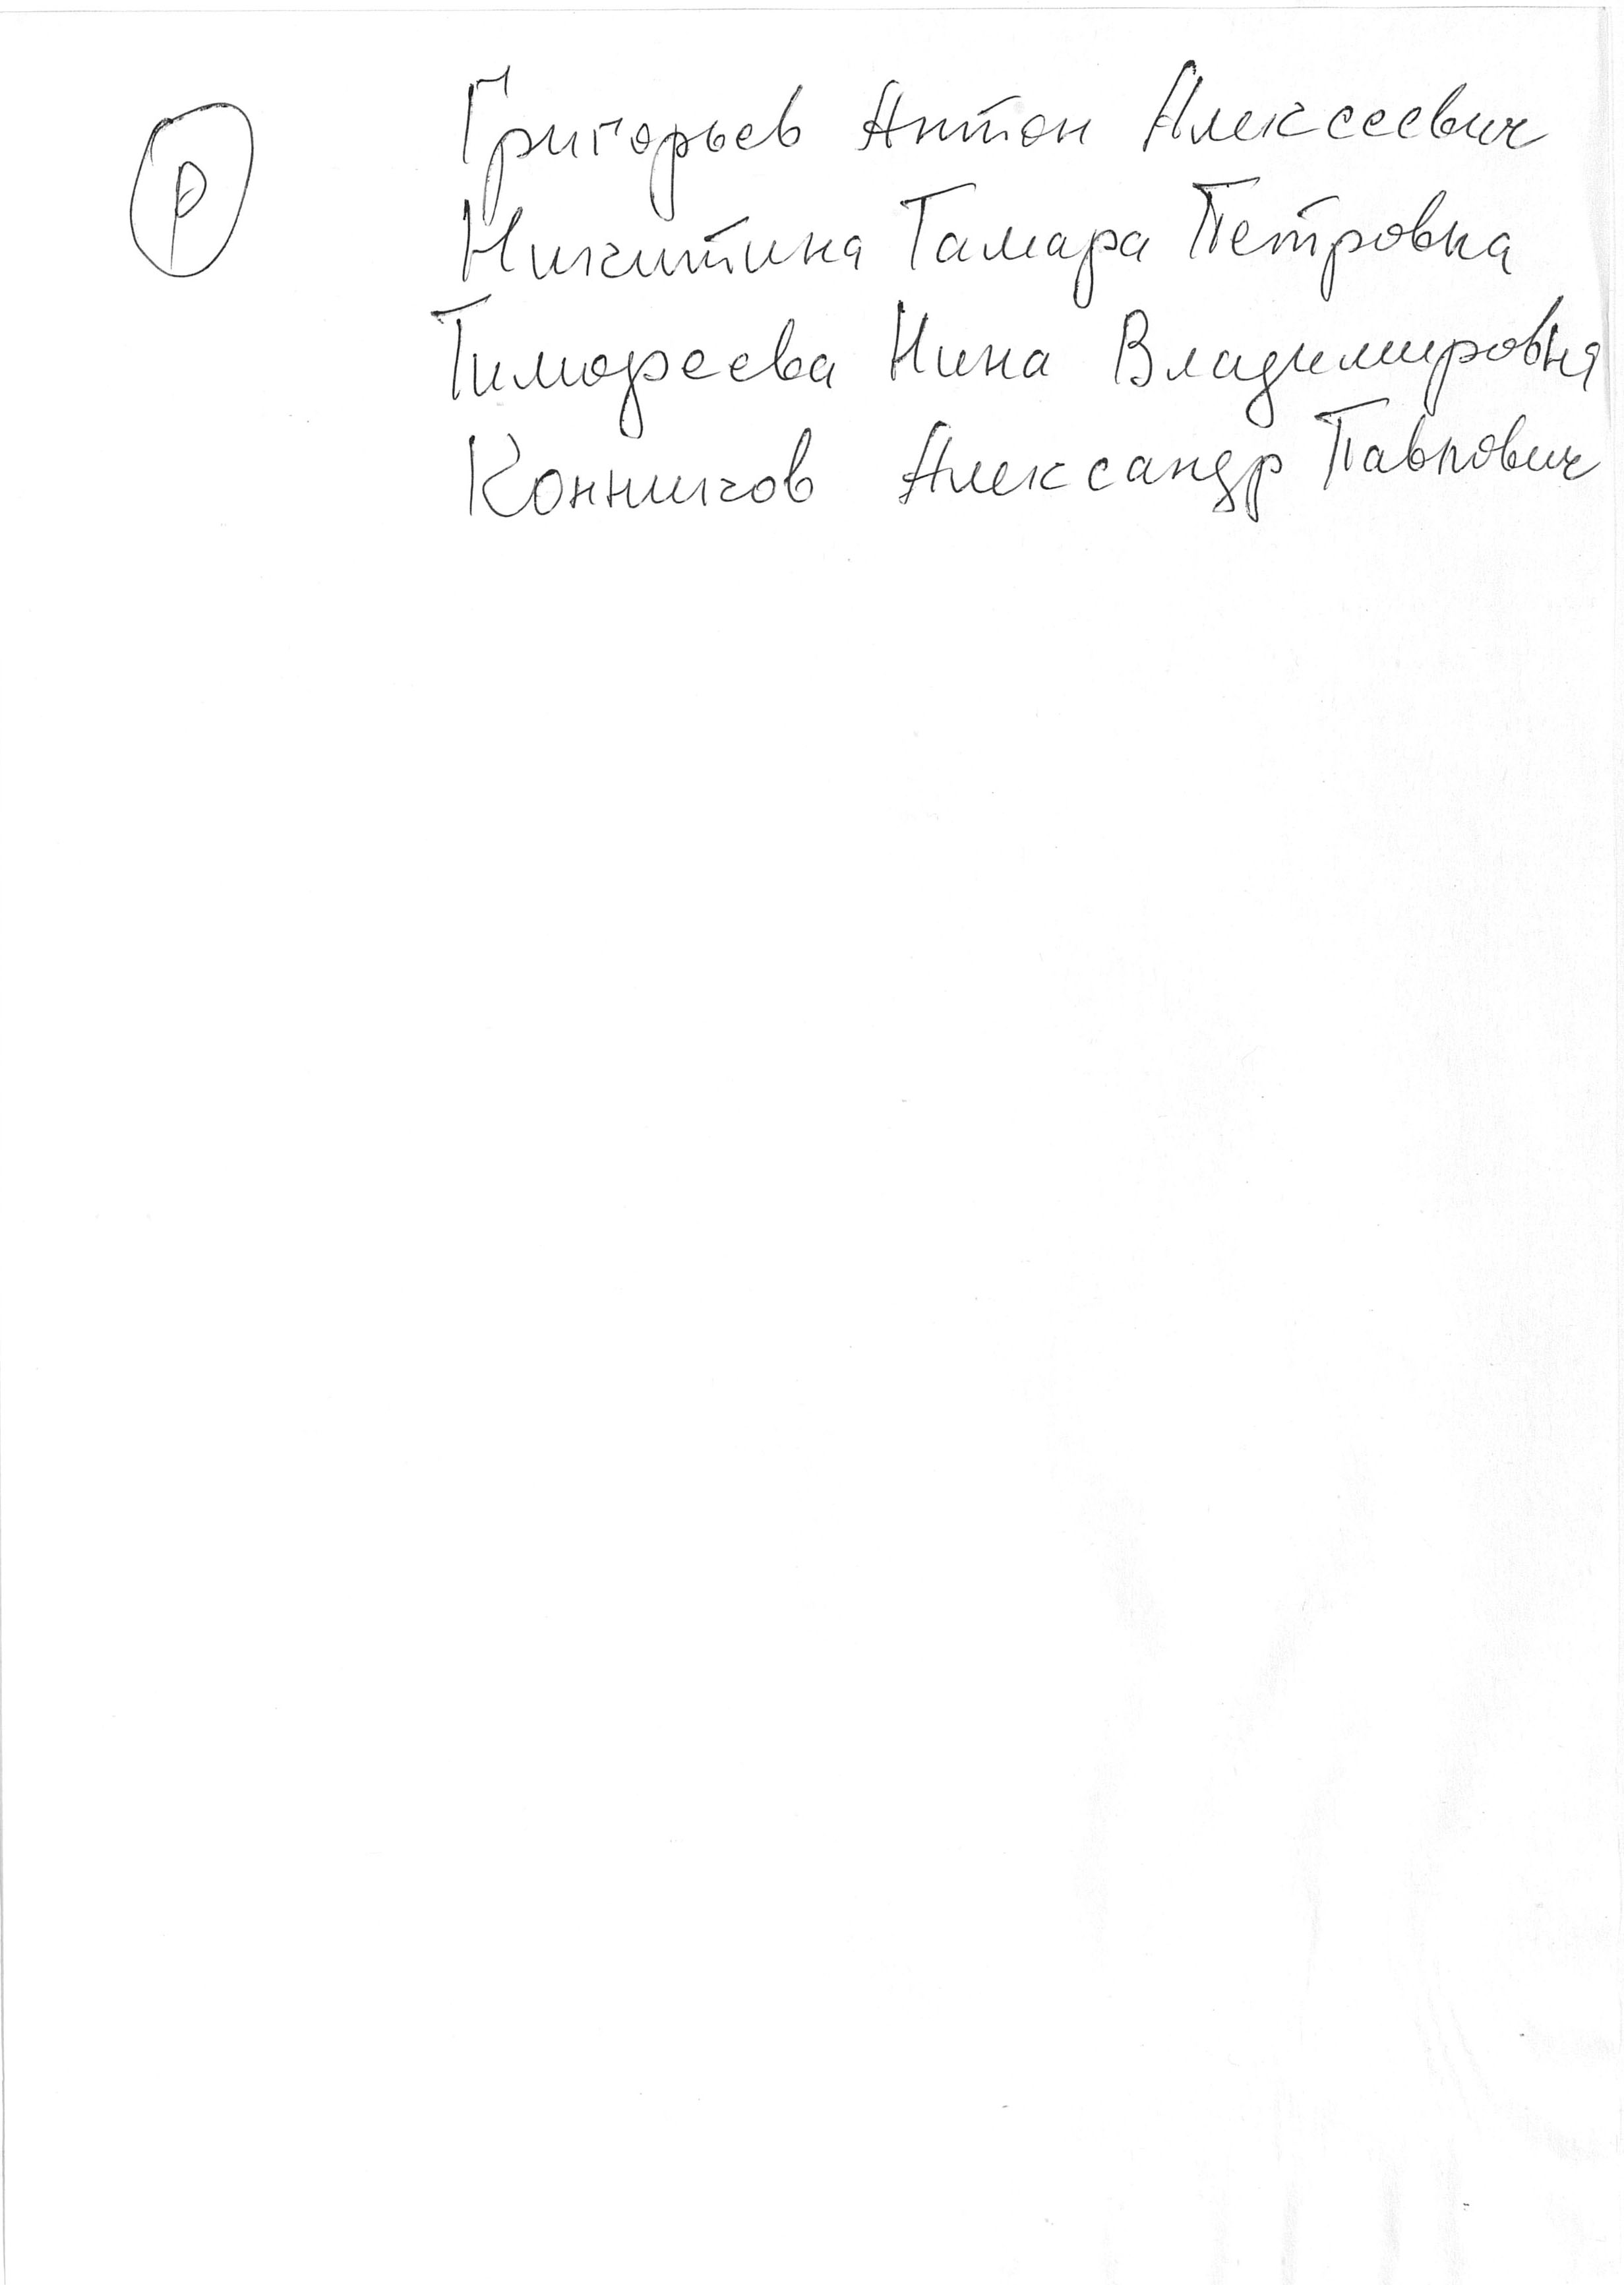 Р
Григорьев Антон Алексеевич
Никитина Тамара Петровна
Тимофеева Нина Владимировна
Конников Александр Павлович